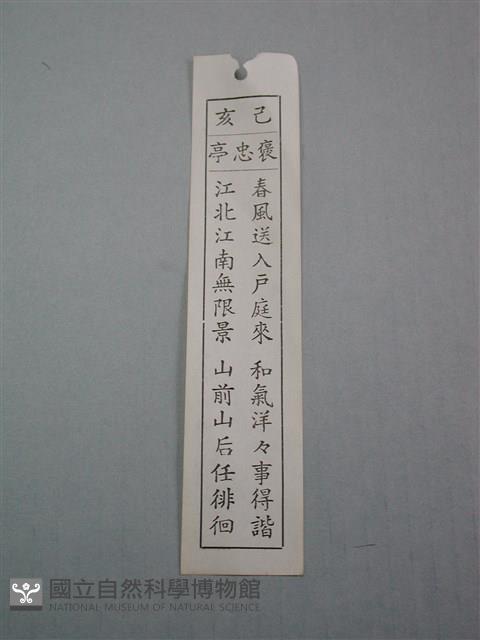 己亥
褒忠亭
春風送入戶庭來 和氣洋々事得諧
江北江南無限景 山前山后任徘徊
國立自然科學博物館
NATIONAL MUSEUM OF NATURAL SCIENCE